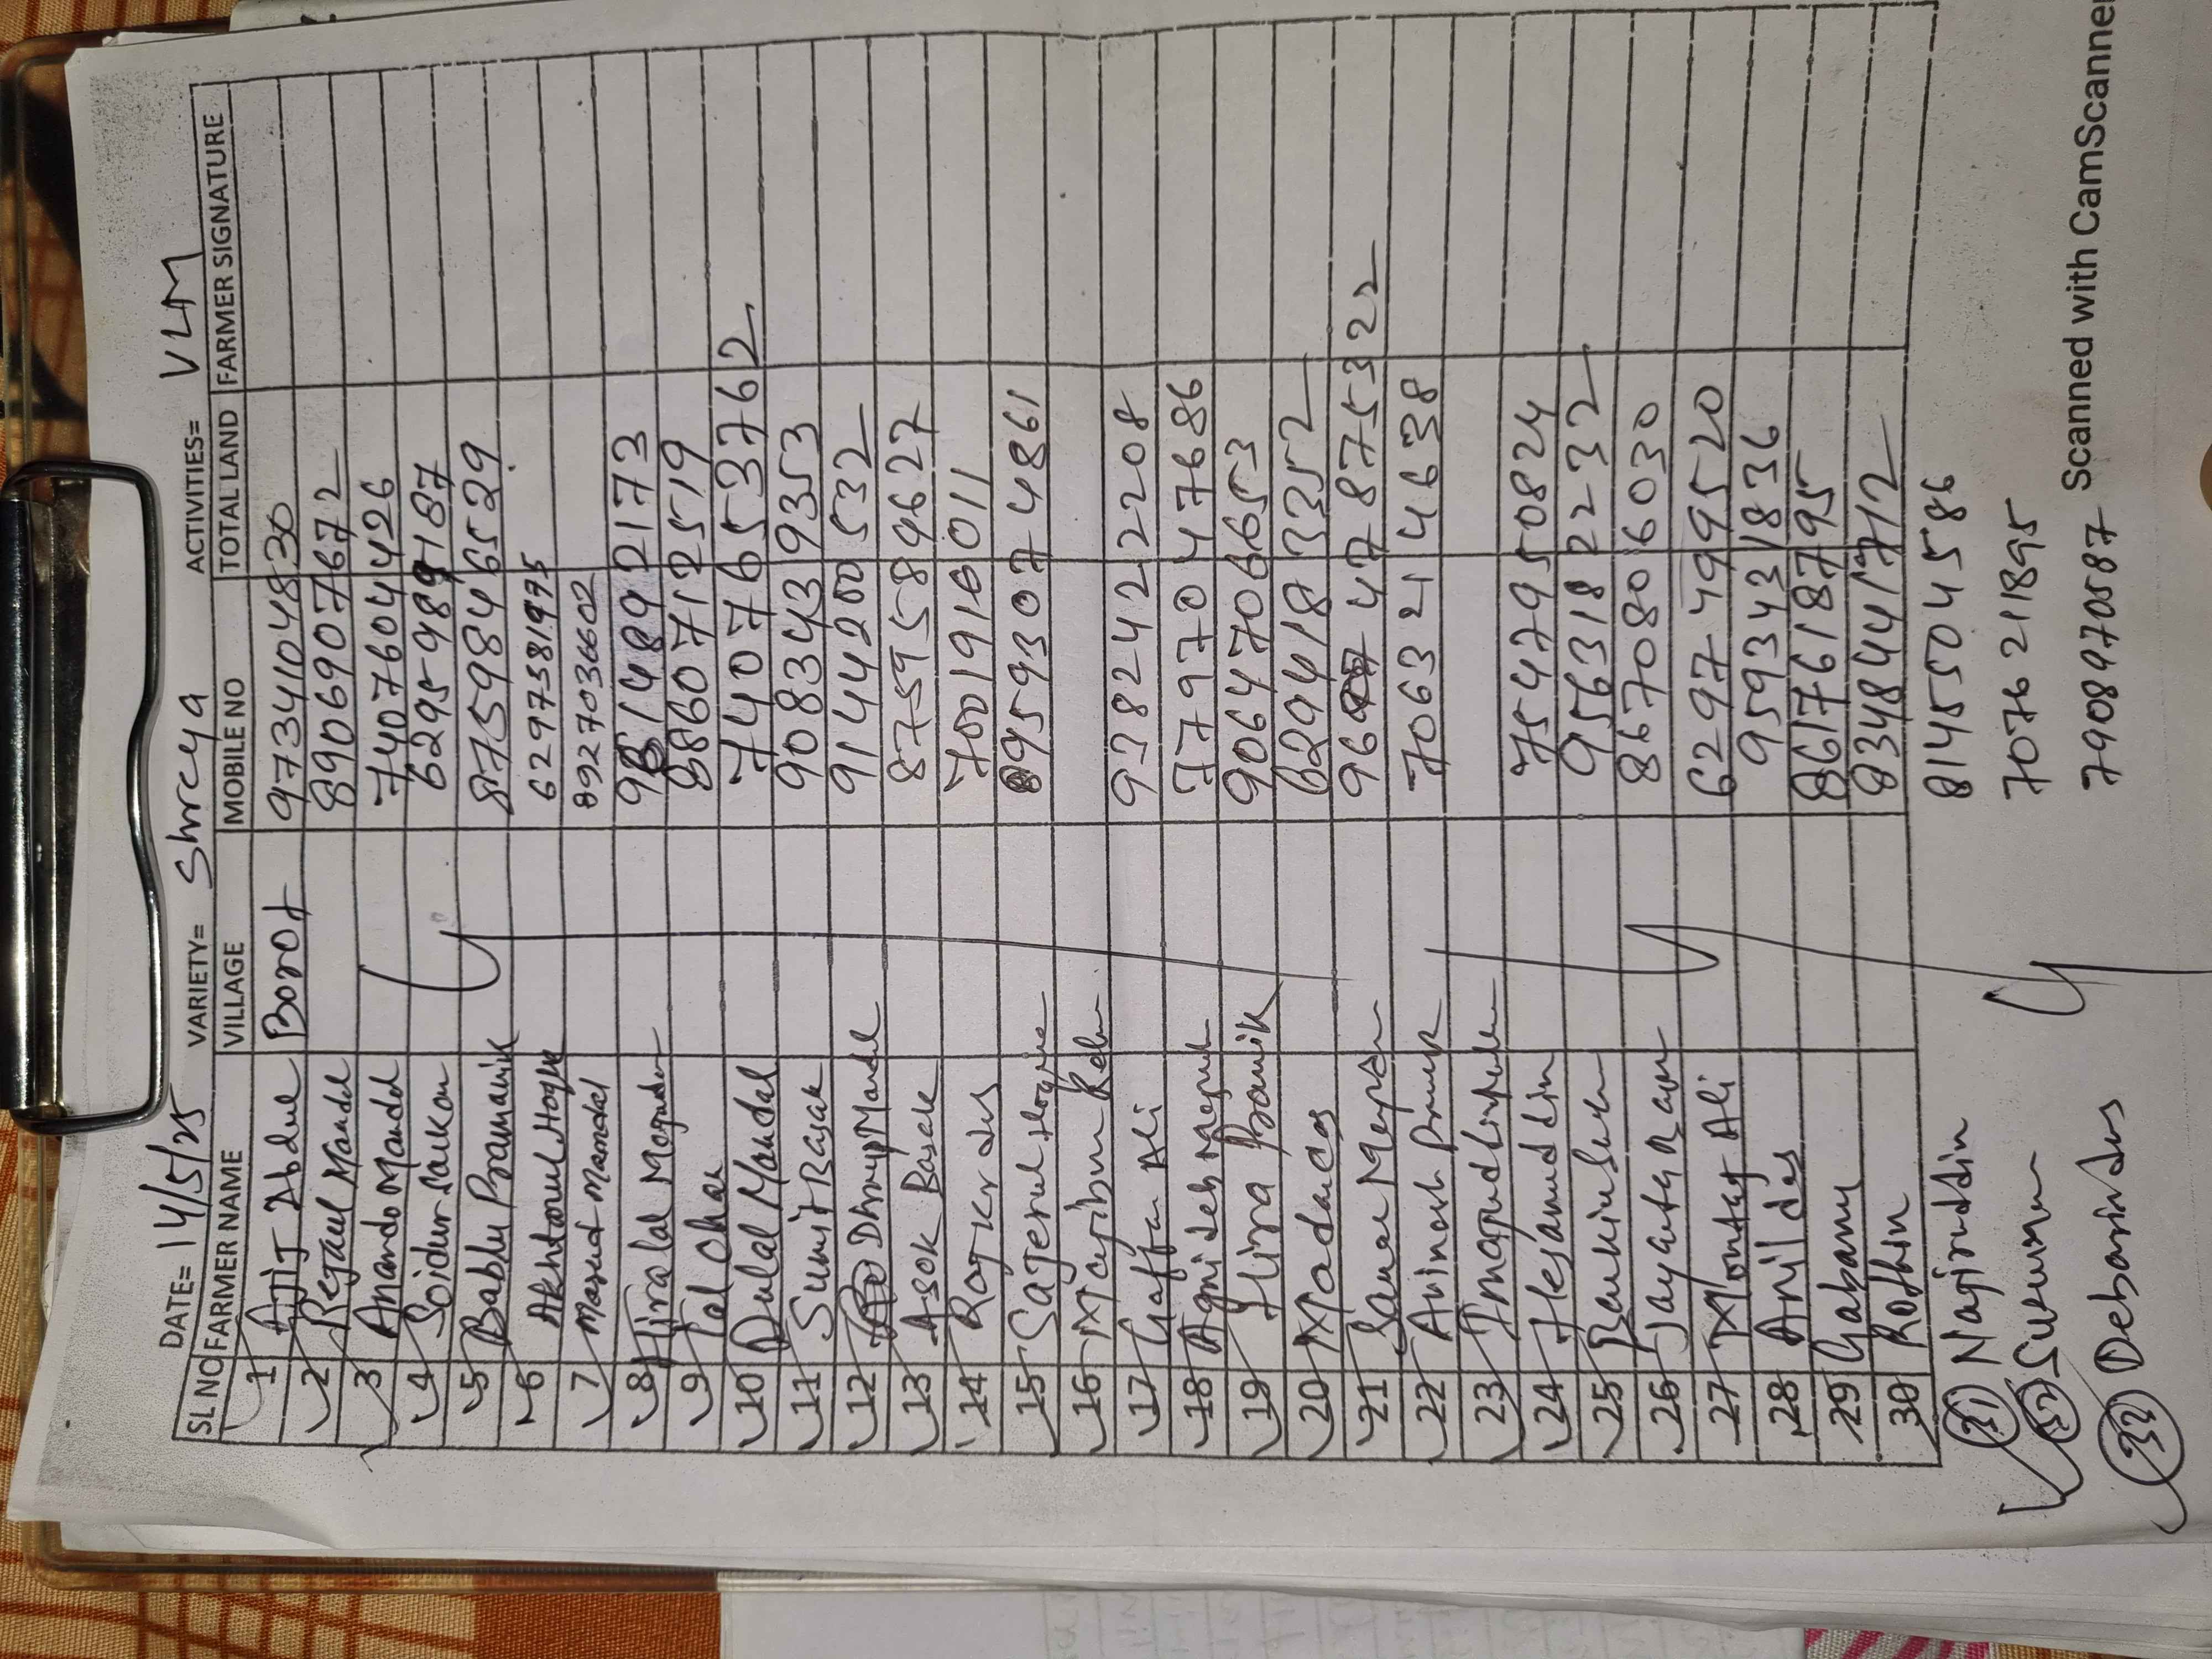 DATE= 14/5/25 VARIETY= Shreya ACTIVITIES= VLM
SL NO FARMER NAME VILLAGE MOBILE NO TOTAL LAND FARMER SIGNATURE
1 Ajij Abdul Borot 9734104830
2 Rejaul Mandal 8906907672
3 Anando Mandal 7407604426
4 Soidur Sarkar 6295989187
5 Bablu Pramanik 8759846529
6 Akhtarul Hoque 6297581995
7 Masud Mandal 8927036602
8 Hiralal Mogumdar 2173
9 Lal Chan 860712519
10 Dulal Mandal 7407653762
11 Sumit Basak 9083439353
12 Dhrup Mandal 9144200532
13 Asok Basak 8759589627
14 Rajker das 7001910011
15 Sajerul Hoque 8959307 4861
16
17 Gaffar Ali 9382422208
18 Agnideb 7797047686
19 Hira Pramik 9064706653
20 Madan Das 6294183352
21 87532 2
22 Avinash Pramik 7063214638
23
24 Hesamuddin 7547950824
25 9563182232
26 Jayanta Rayon 8670806030
27 Montaj Ali 6297499520
28 Anil das 9593431836
29 Gabamu 8617618795
30 Robin 8348441712
31 Najiruddin 8145504586
32 7076211895
33 Debasin das 7908970587 Scanned with CamScanner